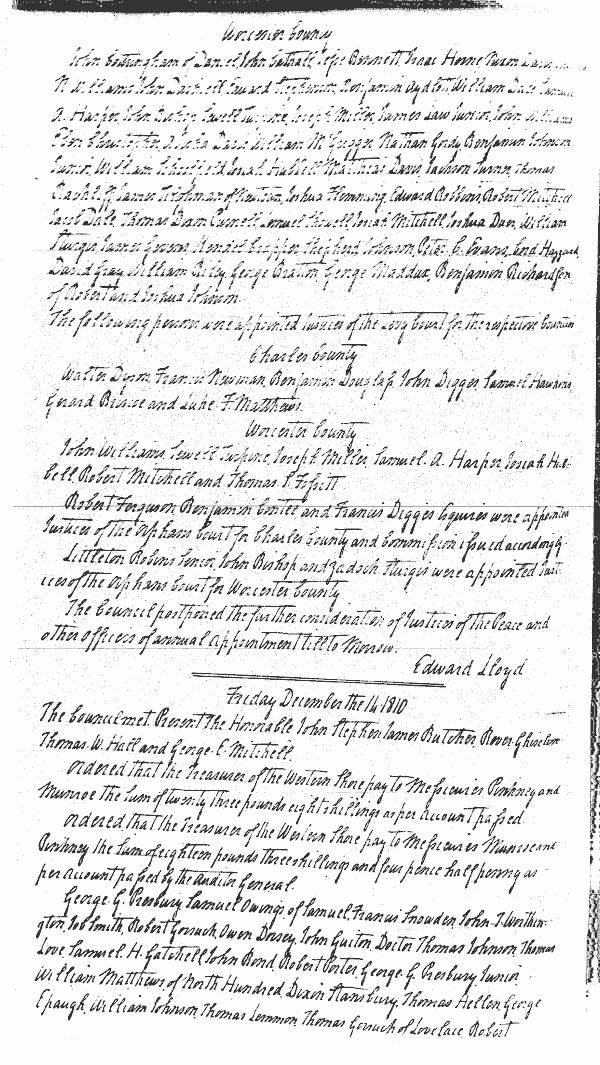 Worcester County
John Cottingham of Daniel, John Cathall, Jesse Bennett, Isaac Horne
Williams John Edward Stephenson, Benjamin Aydlott, William Dale
A. Harper, John Bishop, Sewell Turpine, Joseph Miller, James Law Junior, John Williams
Christopher, Davis William McGregor, Nathan Gordy, Benjamin Johnson
Junior, William Josiah Hubbell Matthias Davis, Jackson Turner, Thomas
James Joshua Flemming, Edward Robbins, Robert Mitchell
Jacob Dale, Thomas Dixon Purnell, Lemuel Showell, Josiah Mitchell, Joshua Duer, William
Sturgis, James Cropper, Shepherd Johnson, Peter C. Evans, Cord Hazzard,
David Gray, William Riley, George Bratton, George Maddux, Benjamin Richardson
of Robert and Joshua Johnson.
The following persons were appointed Justices of the Levy Court for the respective Counties
Charles County
Walter Dyson, Francis Newman, Benjamin Douglass, John Digges, Samuel Hawkins
Gerard Briscoe and Luke F. Matthews.
Worcester County
John Williams, Sewell Turpine, Joseph Miller, Samuel A. Harper, Josiah Hub-
bell Robert Mitchell and Thomas
Robert Ferguson, Benjamin Contee and Francis Digges Esquires were appointed
Justices of the Orphans Court for Charles County and Commission issued accordingly
Littleton Robins Senior, John Bishop and Zadock Sturgis were appointed Just-
ices of the Orphans Court for Worcester County
The Council postponed the further consideration of Justices of the Peace and
other officers of annual Appointment till to Morrow.
Edward Lloyd
Friday December the 14 1810
The Council met. Present The Honorable John Stephen, James Butcher, Rever. Ghiselin
Thomas W. Hall and George E. Mitchell.
Ordered that the Treasurer of the Western Shore pay to Messieurs Pinkney and
Munroe the Sum of twenty three pounds eight shillings as per Account passed
Ordered that the Treasurer of the Western Shore pay to Messieurs Munroe and
Pinkney the Sum of eighteen pounds three shillings and four pence half penny as
per Account passed by the Auditor General.
George G. Presbury, Samuel Owings of Samuel, Francis Snowden, John T. Worthin-
gton, Job Smith, Robert Gorsuch, Owen Dorsey, John Guiton, Doctor Thomas Johnson, Thomas
Love, Samuel H. Gatchell, John Bond, Robert Porter, George G. Presbury Junior
William Matthews of North Hundred, Dixon Stansbury, Thomas Hellen, George
Epaugh, William Johnson, Thomas Lemmon, Thomas Gorsuch of Lovelace, Robert